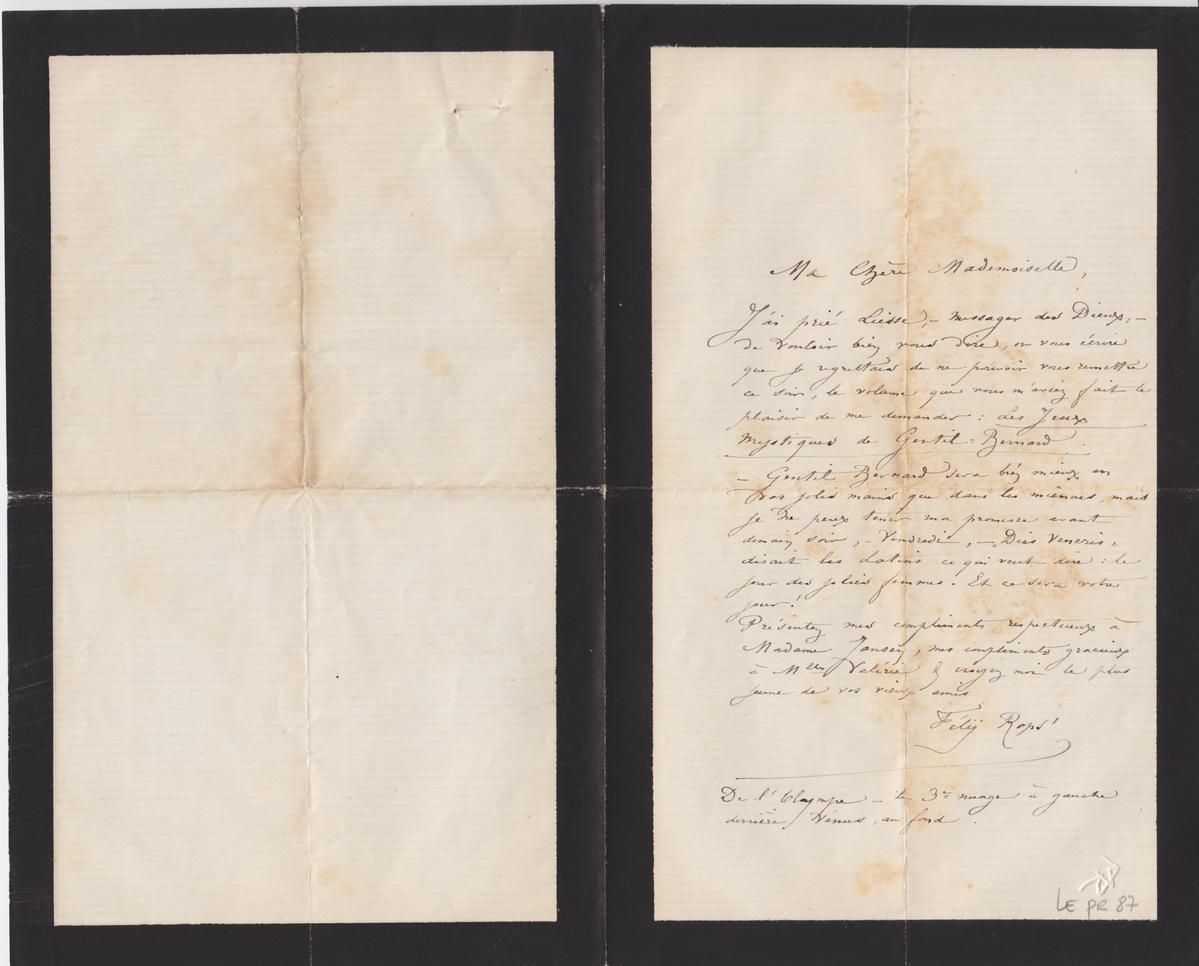 Ma Chère Mademoiselle,
J'ai prié Liesse, – messager des Dieux, –
de vouloir bien vous dire, ou vous écrire
que je regrettais de ne pouvoir vous remettre
ce soir, le volume que vous m'aviez fait le
plaisir de me demander : Les Jeux
Mystiques de Gentil-Bernard.
– Gentil Bernard sera bien mieux en
vos jolies mains que dans les miennes, mais
je ne peux tenir ma promesse avant
demain soir, – Vendredi, – „Dies Veneris„
disait les Latins ce qui veut dire : le
jour des jolies femmes. Et ce sera votre
jour !
Présentez mes compliments respectueux à
Madame Jansen, mes compliments gracieux
à Mlle Valérie & croyez moi le plus
jeune de vos vieux amis
Félicien Rops
De l'Olympe – le 3e nuage à gauche
derrière Vénus, au fond.
LE PR 87